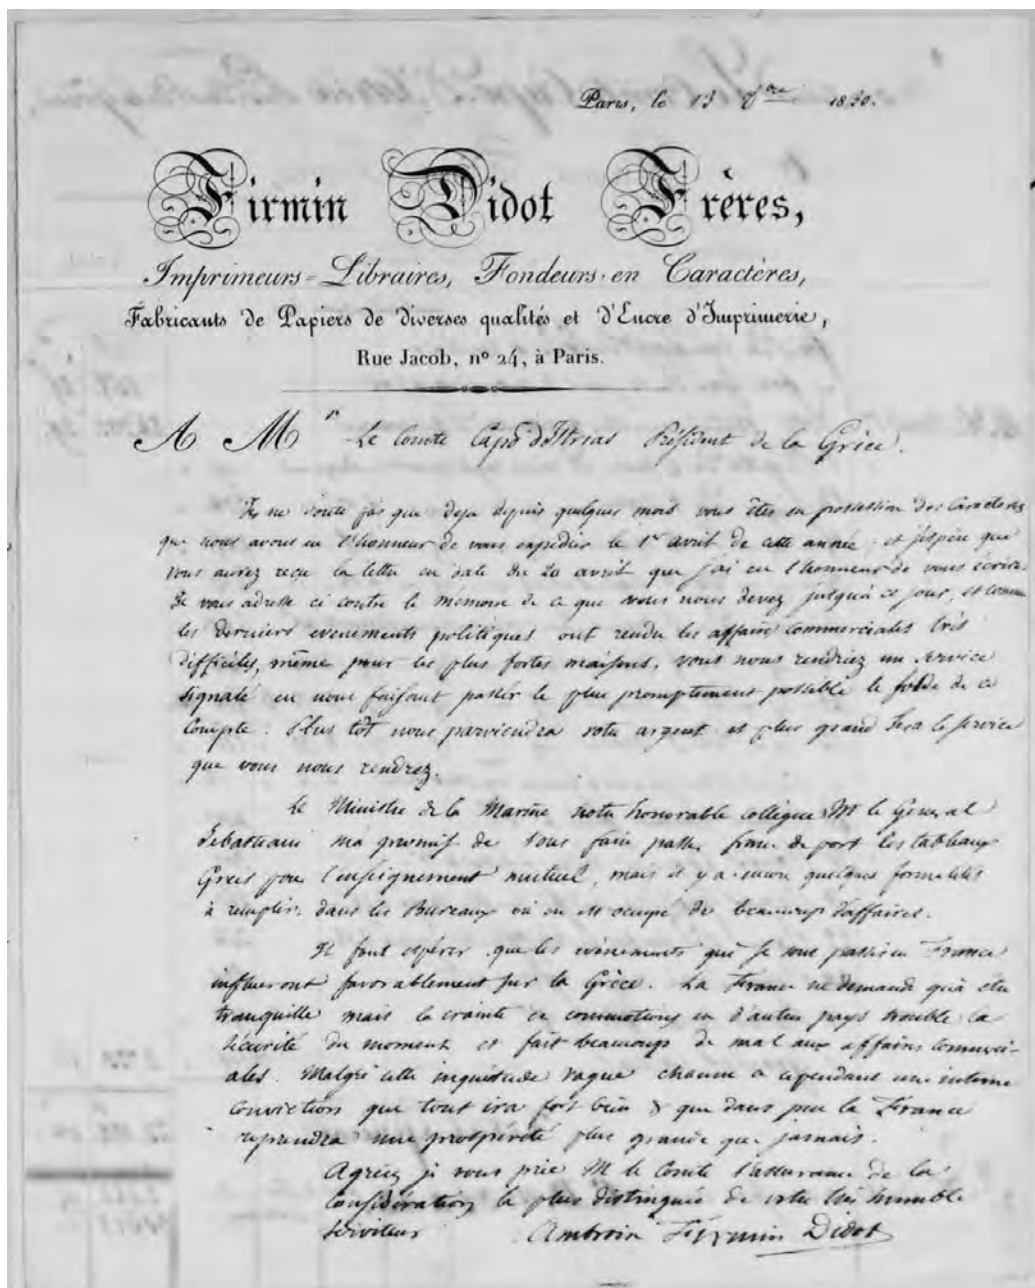 Paris, le 13 8bre 1830.
Firmin Didot Frères,
Imprimeurs=Libraires, Fondeurs en Caractères,
Fabricants de Papiers de diverses qualités et d'Encre d'Imprimerie,
Rue Jacob, nº 24, à Paris.
A Mr Le Comte Capo d'Istrias Président de la Grèce.
Je ne doute pas que deja depuis quelques mois vous êtes en possession des Caracteres
que nous avons eu l'honneur de vous expédier le 1er avril de cette année, et j'espère que
vous aurez reçu la lettre en date du 20 avril que j'ai eu l'honneur de vous écrire.
Je vous adresse ci contre le mémoire de ce que vous nous devez jusqu'à ce jour, et comme
les derniers evenements politiques ont rendu les affaires commerciales très
difficiles, même pour les plus fortes maisons, vous nous rendriez un service
signalé en nous faisant passer le plus promptement possible le solde de ce
Compte. Plus tôt nous parviendra votre argent et plus grand sera le service
que vous nous rendrez.
Le Ministre de la Marine notre honorable collègue Mr le Général
Sebastiani m'a promis de vous faire passer franc de port les tableaux
Grecs pour l'enseignement mutuel, mais il y a encore quelques formalités
à remplir dans les Bureaux où on est occupé de beaucoup d'affaires.
Il faut espérer que les evénements qui se sont passés en France
influeront favorablement sur la Grèce. La France ne demande qu'à être
tranquille mais la crainte de commotions en d'autres pays trouble la
sécurité du moment et fait beaucoup de mal aux affaires commerci-
ales. Malgré cette inquietude vague chacun a cependant une intime
Conviction que tout ira fort bien & que dans peu la France
reprendra une prospérité plus grande que jamais.
Agréez je vous prie Mr le Comte l'assurance de la
Considération la plus distinguée de votre très humble
serviteur Ambroise Firmin Didot